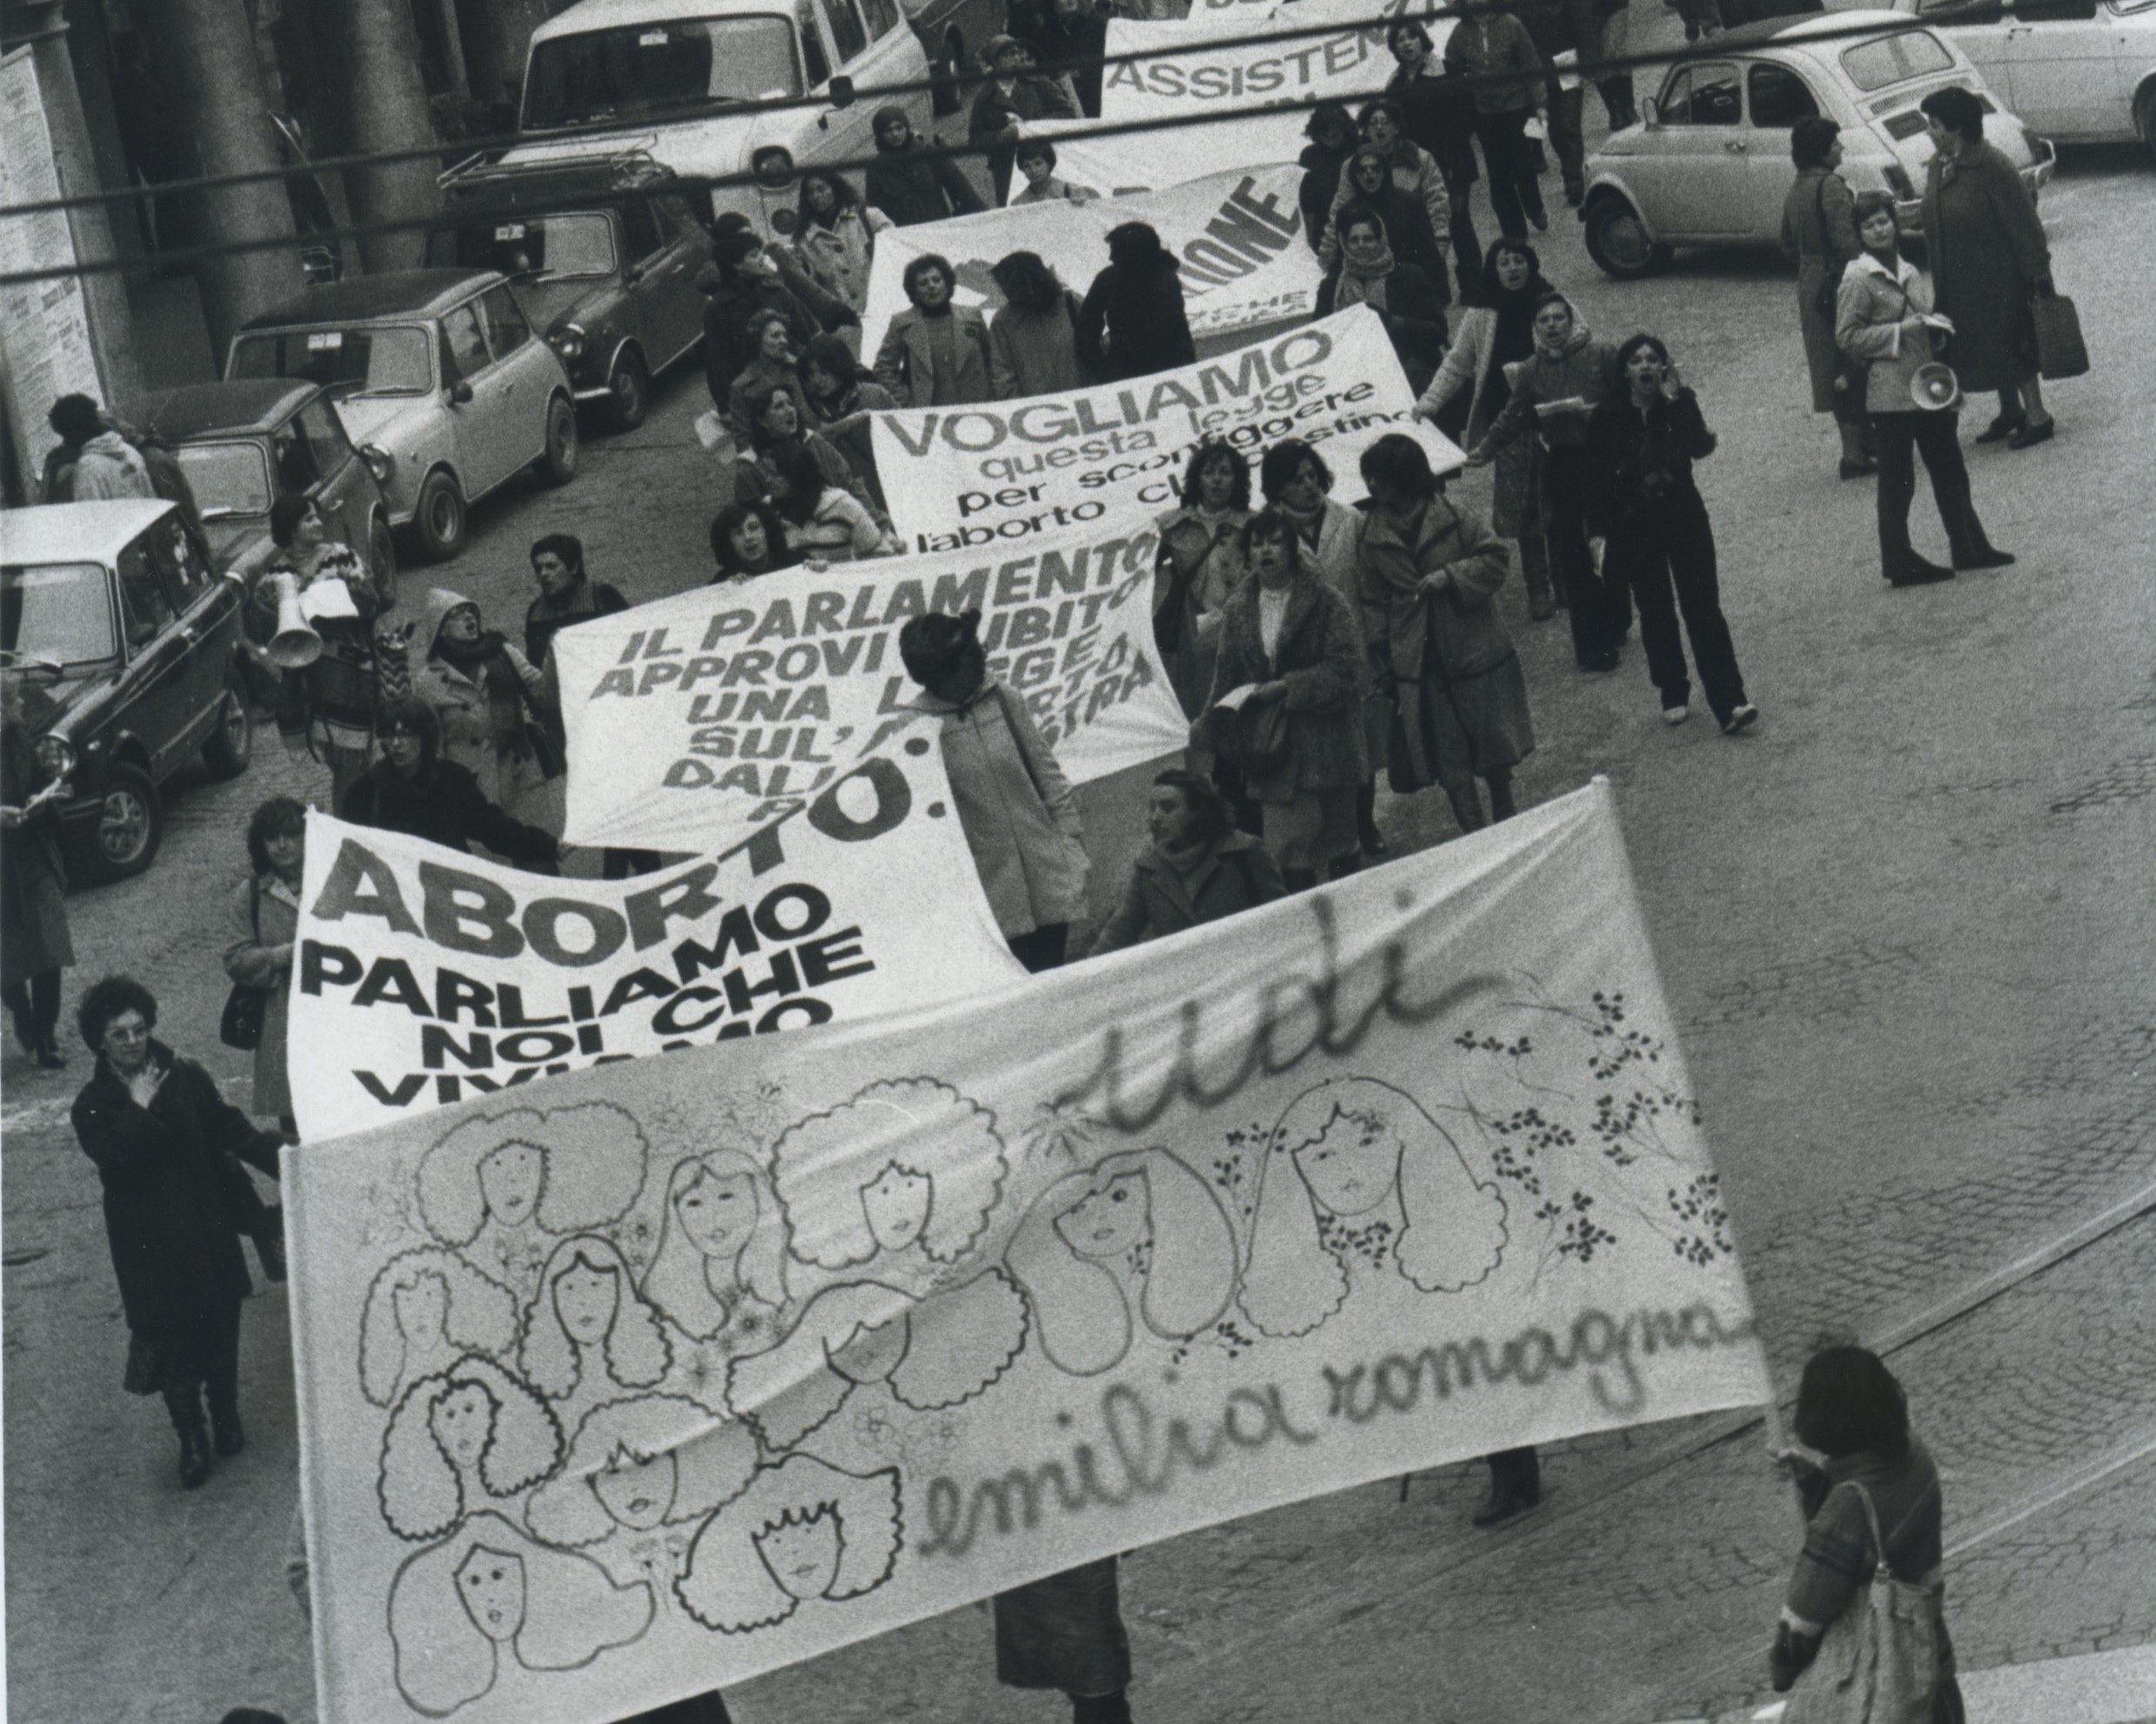 ASSISTEN
IONE
VOGLIAMO
questa legge
per sconfiggere
l'aborto
IL PARLAMENTO
APPROVI SUBITO
UNA LEGGE
SUL'
ABORTO.
PARLIAMO
NOI CHE
VIVIAMO
udi
emilia romagna